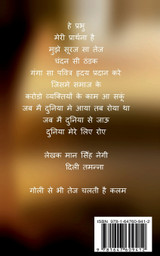 हे प्रभु
मेरी प्रार्थना है
मुझे सूरज सा तेज
चंदन सी ठंडक
गंगा सा पवित्र हृदय प्रदान करे
जिससे समाज के
करोडो व्यक्तियों के काम आ सकू
जब मै दुनिया मे आया तब रोया था
जब मै दुनिया से जाऊ
दुनिया मेरे लिए रोए
लेखक मान सिंह नेगी
दिली तमन्ना
गोली से भी तेज चलती है कलम